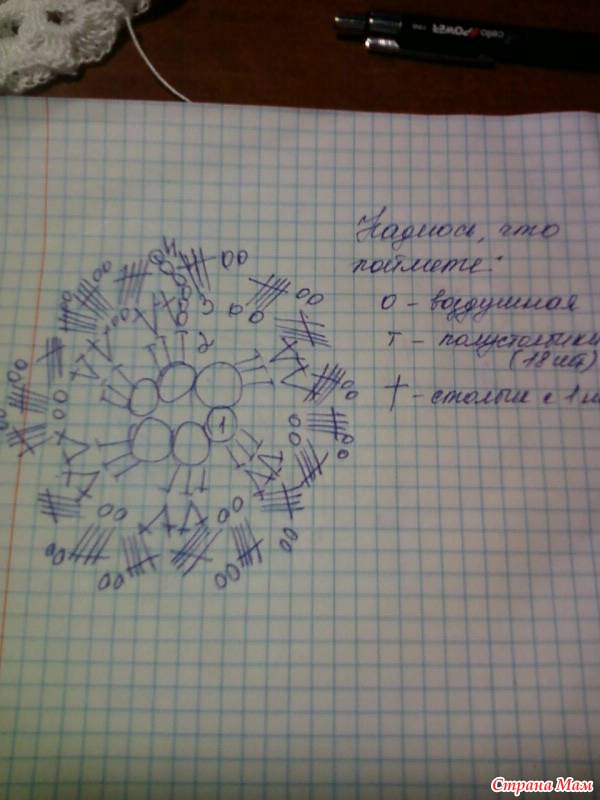 Надиюсь, что
поймете:
о - воздушная
т - полустолбики
(18 шт)
† - столбик с 1 н
1
2
3
4
cello POWER
Страна Мам